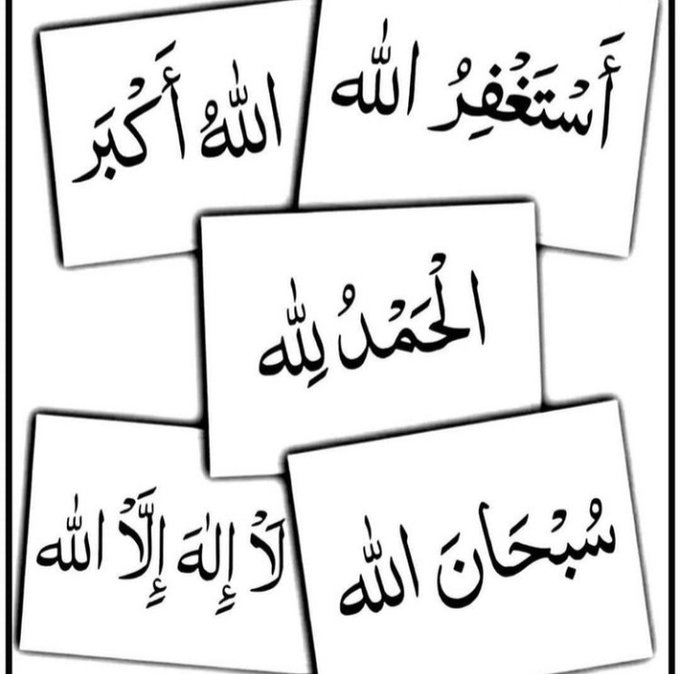 أَسْتَغْفِرُ الله
اللهُ أَكْبَر
الْحَمْدُ لِلّٰه
سُبْحَانَ الله
لَاْ إِلٰهَ إِلَّاْ الله